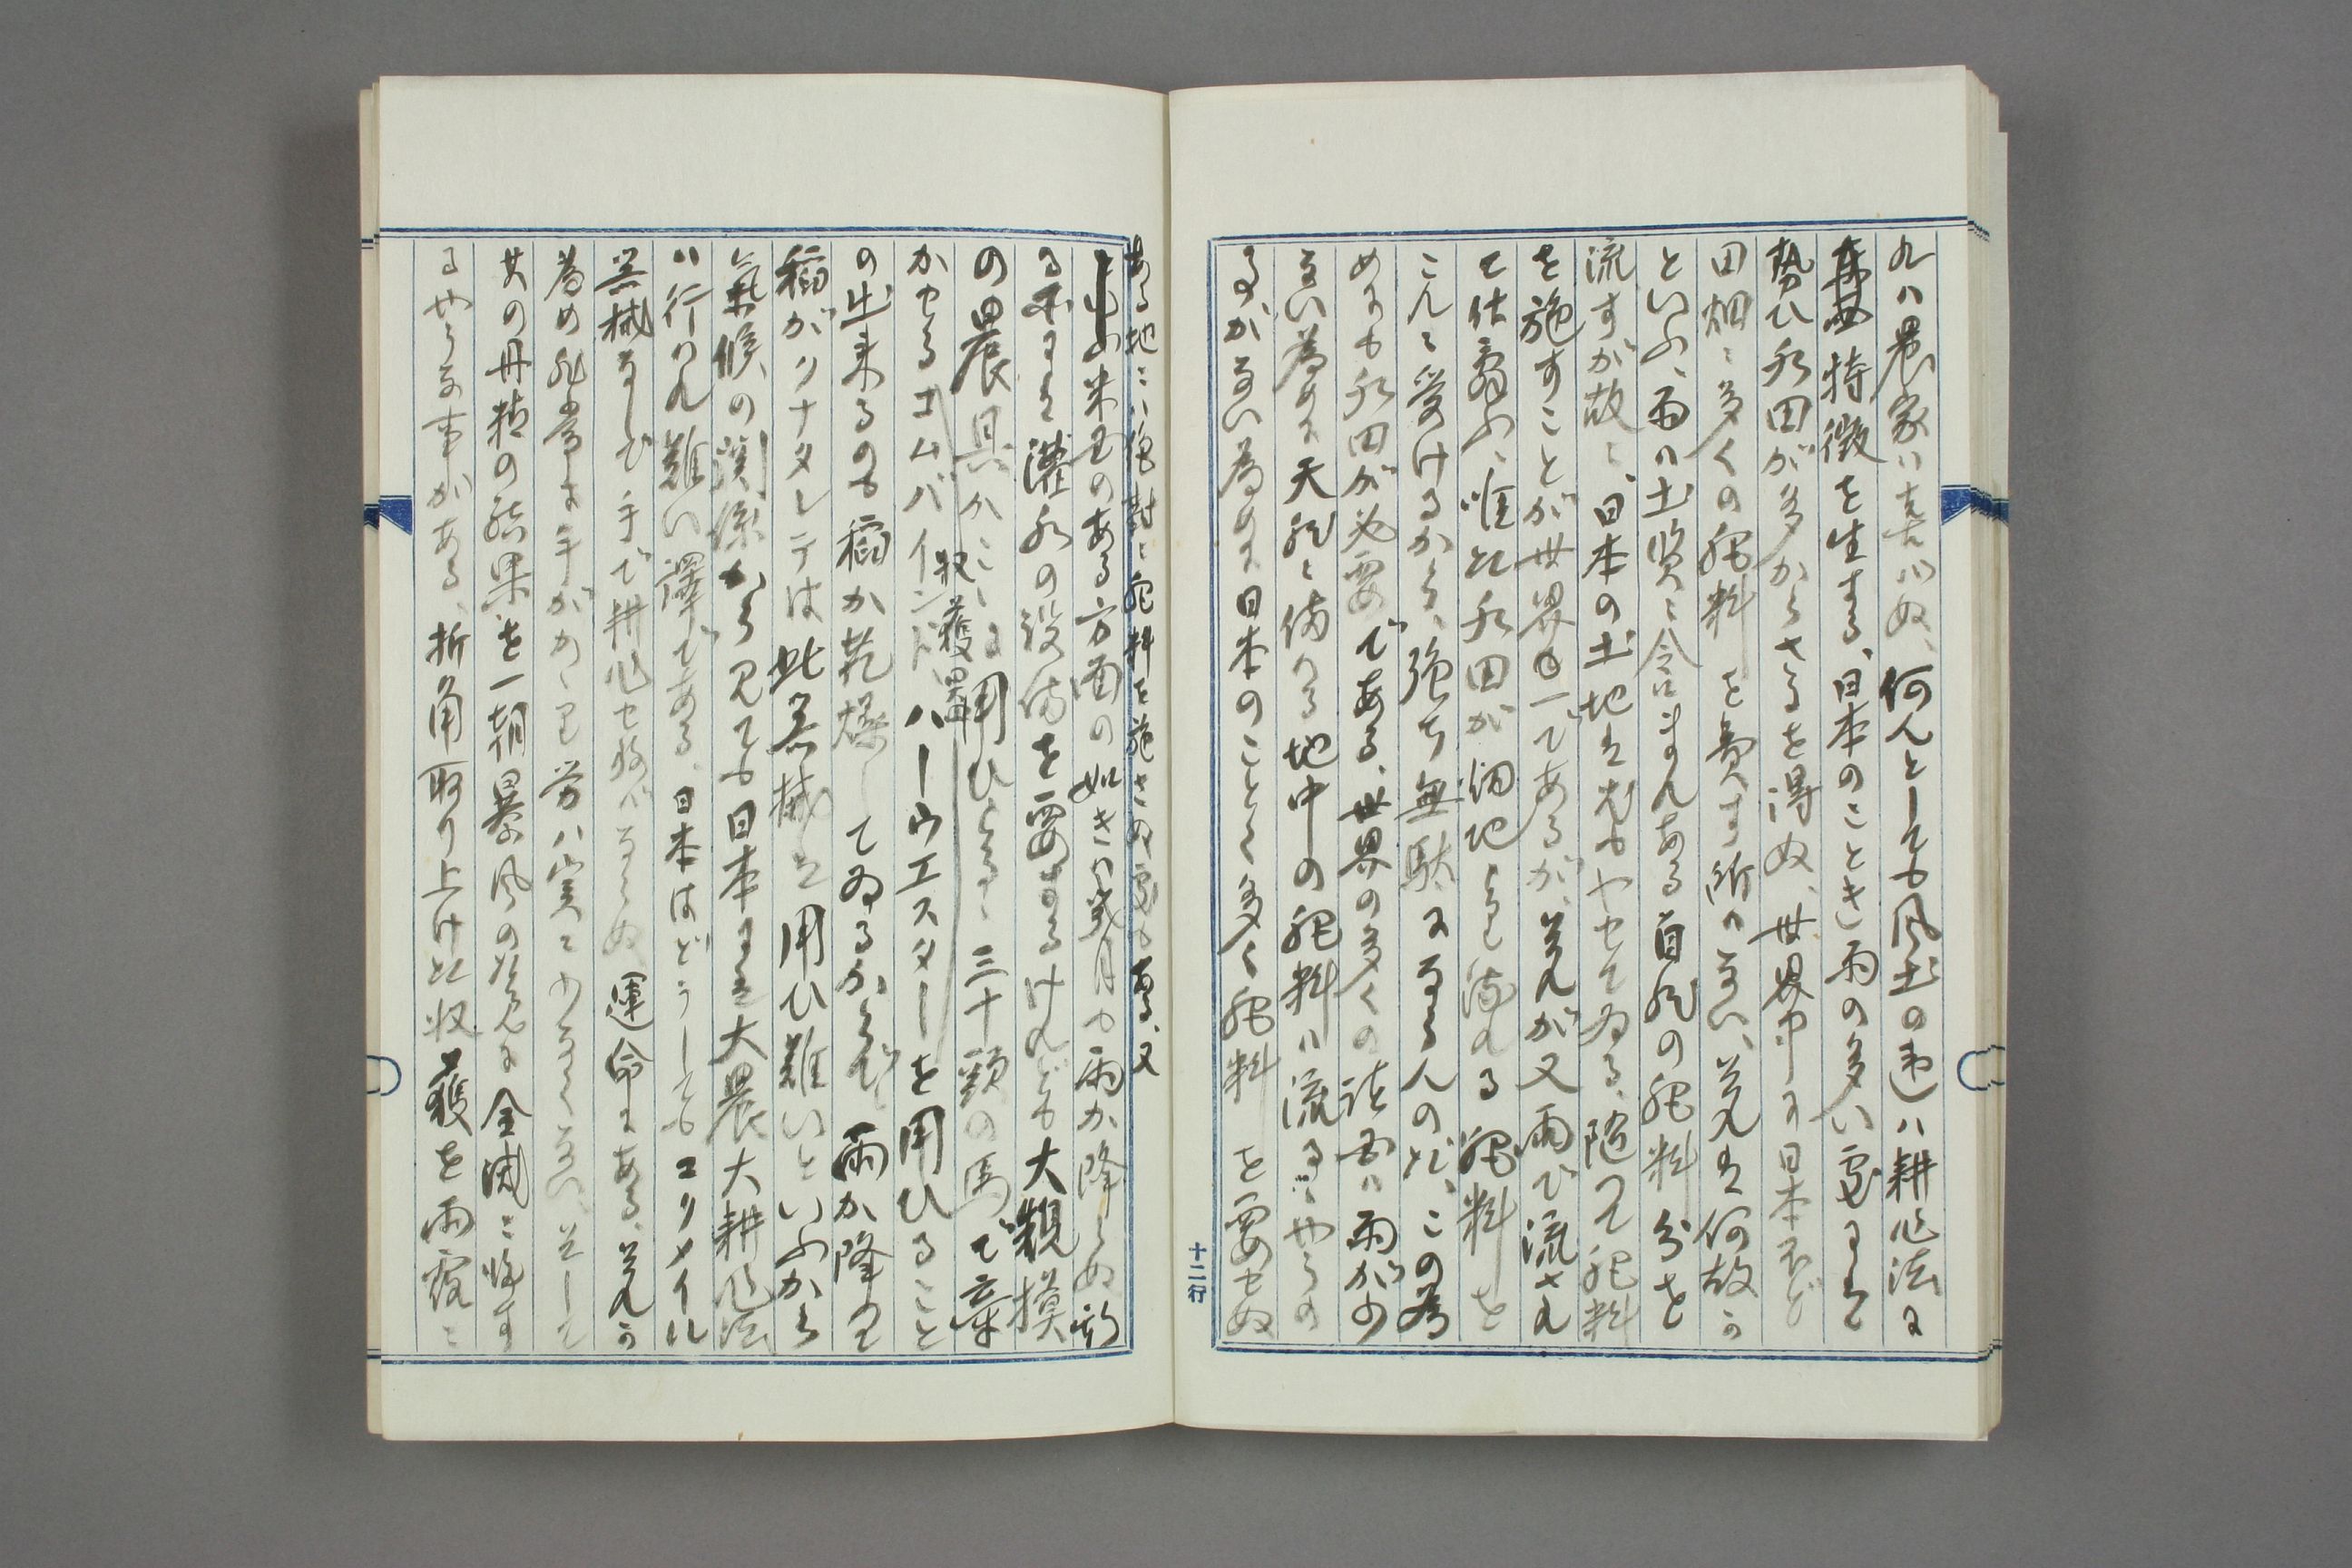 九ハ農家ハ喜ハぬ、何んとしても風土の違ハ耕作法に
特徴を生する、日本のことき雨の多い處にては
勢ひ水田が多からさるを得ぬ、世界中に日本ほど
田畑に多くの肥料を費す所はない、其れは何故か
といふ、雨が土質に含まれある自然の肥料分を
流すが故に、日本の土地は尤もやせてゐる、随つて肥料
を施すことが世界中一であるが、其れが又雨で流され
て仕舞ふ、唯に水田が畑地より流れる肥料を
こゝに受けるから、強ち無駄にならんのだ、この為
めにも水田が必要である、世界の多くの諸国ハ雨が少
ない為めに天然に備わる地中の肥料ハ流るゝやうの
事がない為めに日本のことく多く肥料を要せぬ
ある地にハ絶対に肥料を施さぬ處もある、又
米国のある方面の如きハ幾月も雨か降らぬ
る為には灌水の設備を要するけれども大規模
の農具かこゝに用ひらるゝ三十頭の馬で牽
収穫器
かせるコムバインド、ハーウエスターを用ひること
の出来るのも稲か乾燥してゐるからだ、雨か降りて
稲がリナタレテは此器械は用ひ難いといふから
氣候の関係から見ても日本には大農大耕作法
ハ行われ難い譯である、日本はどうしてもコリメイル
器械なしで手で耕作せねばならぬ運命にある、其れか
為め非常に手がかゝり労ハ実に少なくない、そして
其の丹精の結果を一朝暴風の為めに全滅に帰す
るやうな事がある、折角取り上けた収穫を雨露に
十二行